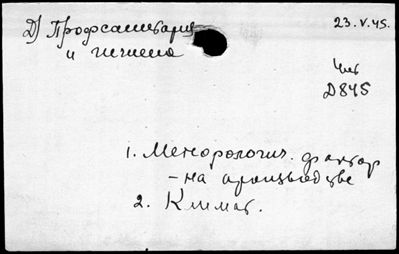 Д) Профсанитария
и гигиена
23.V.45.
Чит
D845
1. Метеорологич. фактор
- на производстве
2. Климат.